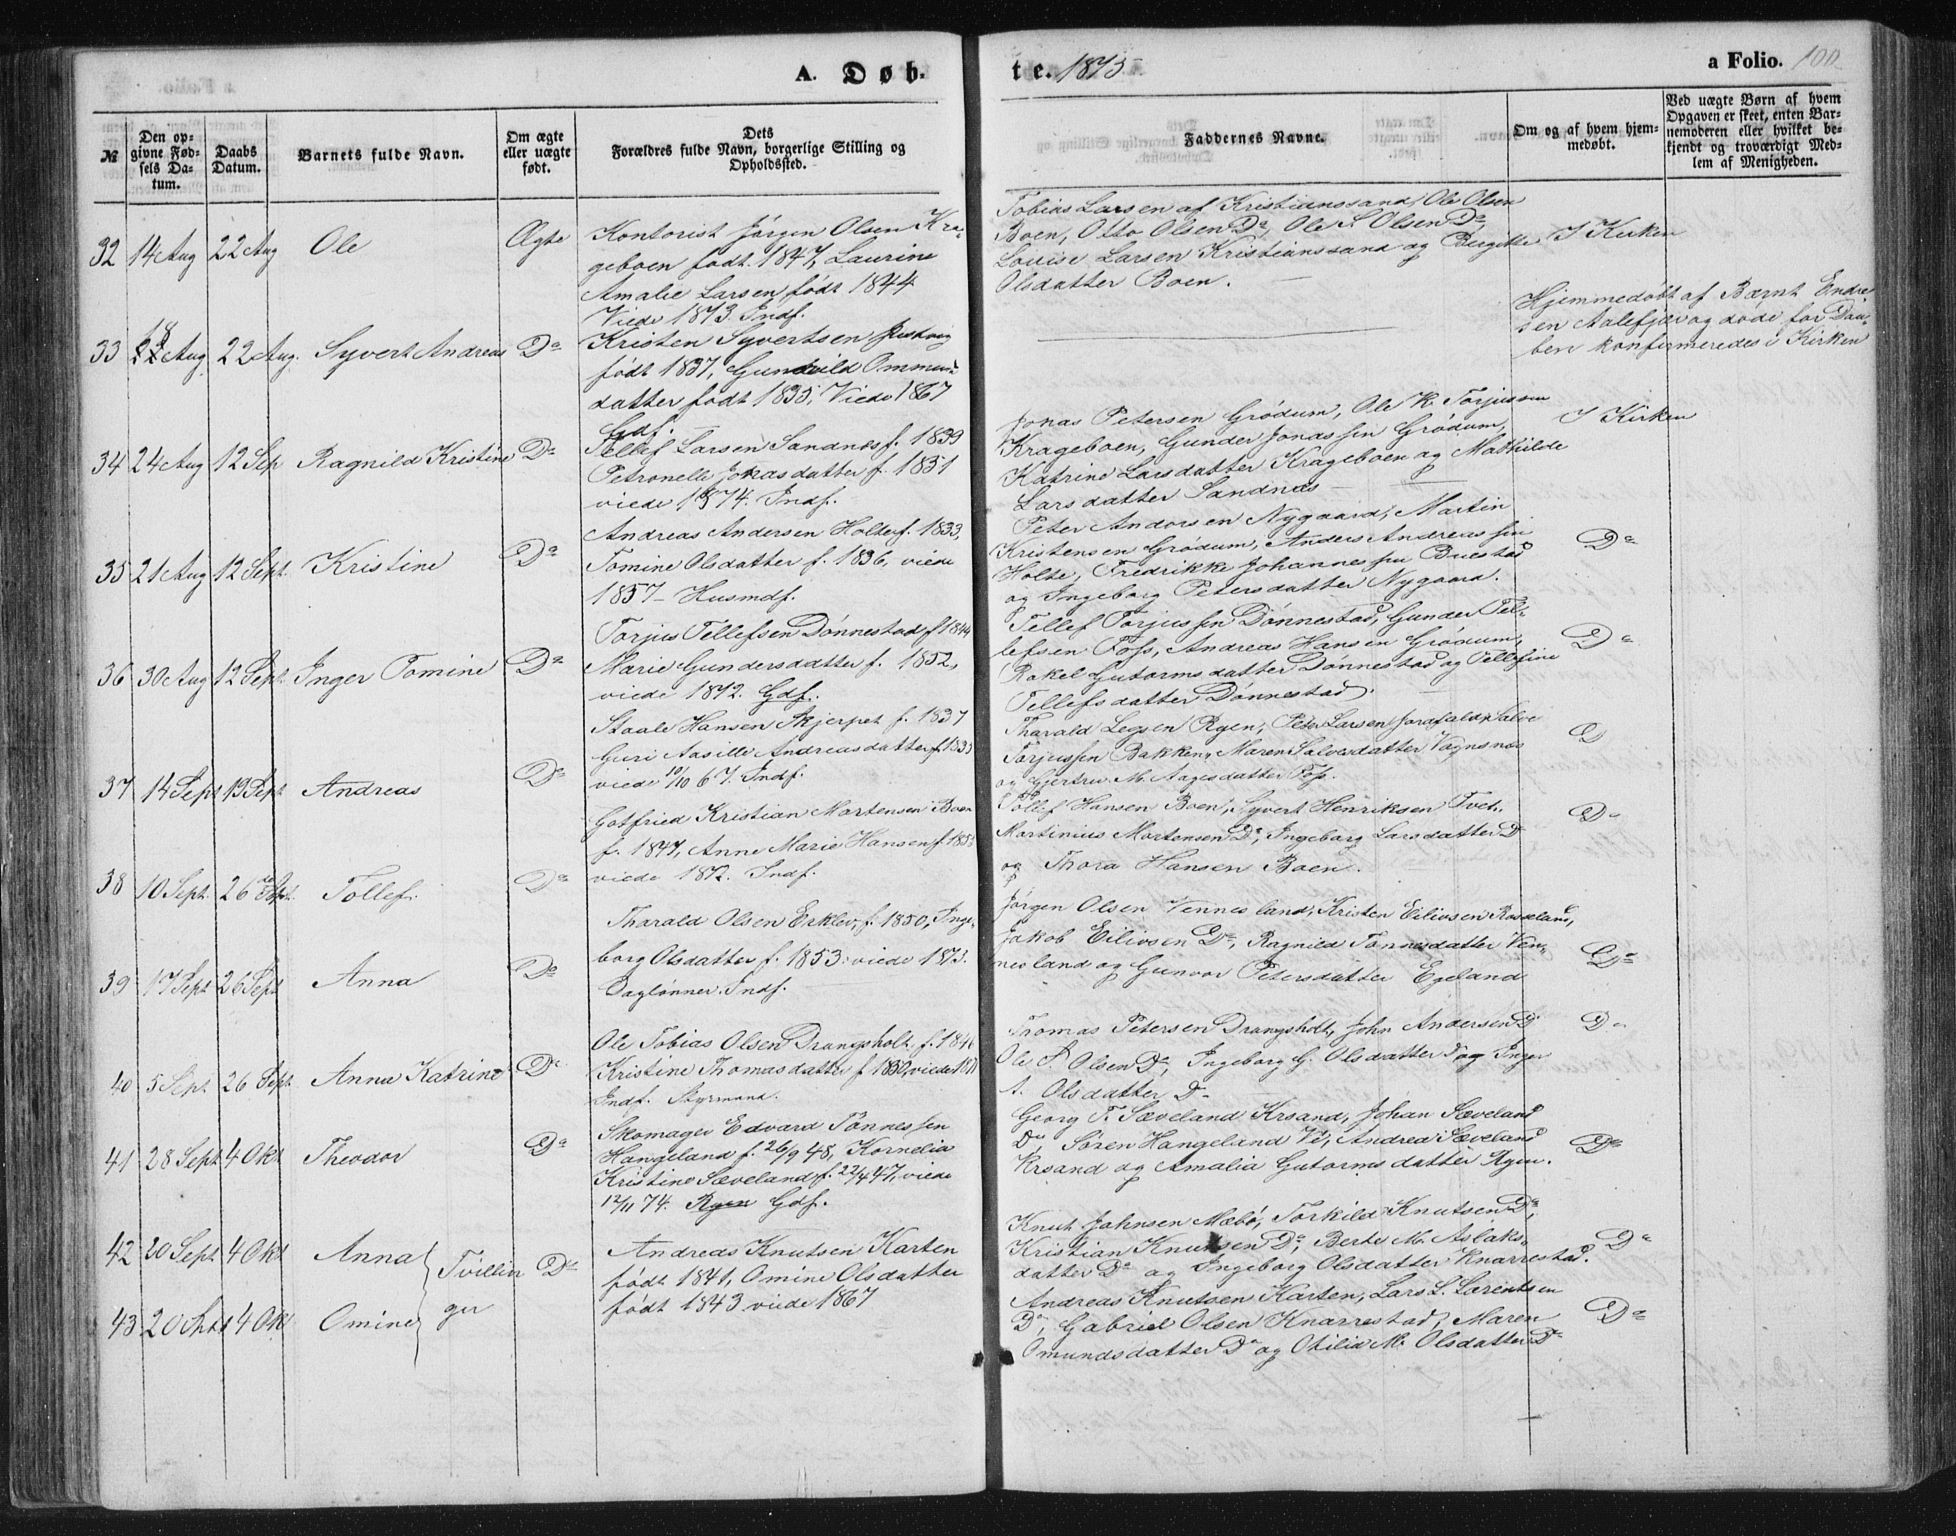 A. Døb-
te. 1875
a Folio. 100
№
Den op-
givne Fød-
sels Da-
tum.
Daabs
Datum.
Barnets fulde Navn.
Om ægte
eller uægte
født.
Dets
Forældres fulde Navn, borgerlige Stilling og
Opholdssted.
Faddernes Navne.
Om og af hvem hjem-
medøbt.
Ved uægte Børn af hvem
Opgaven er skeet, enten Bar-
nemoderen eller hvilket be-
kjendt og troværdigt Med-
lem af Menigheden.
32 14 Aug 22 Aug Ole Ægte
Kontorist Jørgen Olsen Kra-
geboen født 1847, Laurine
Amalie Larsen, født 1844
Viede 1873. Indf.
Tobias Larsen af Kristianssand, Ole Olsen
Boen, Otto Olsen Do, Ole S. Olsen Do,
Louise Larsen Kristianssand og Bergitte
Olsdatter Boen.
I Kirken
33 18 Aug 22 Aug. Syvert Andreas Do
Kristen Syvertsen
født 1837, Gunvild Ommun-
datter født 1835, Viede 1867
Gdf.
Hjemmedøbt af Bærnt Endre
sen Aalefjær og døde før Daa-
ben konfirmeredes i Kirken
34 24 Aug 12 Sep Ragnild Kristine Do
Tellef Larsen Sandnes f. 1839
Petronelle Jonasdatter f. 1851
viede 1874. Indf.
Jonas Petersen Grødum, Ole K. Torjussen
Krageboen, Gunder Jonassen Grødum,
Katrine Larsdatter Krageboen og Mathilde
Larsdatter Sandnes
I Kirken
35 21 Aug 12 Sept. Kristine Do
Andreas Andersen Holte f. 1833,
Tomine Olsdatter f. 1836, viede
1857 - Husmdf.
Peter Andorsen Nygaard, Martin
Kristensen Grødum, Anders Andreassen
Holte, Fredrikke Johannessen Buestad
og Ingeborg Petersdatter Nygaard.
Do
36 30 Aug 12 Sept. Inger Tomine Do
Torjus Tellefsen Dønnestad f 1844
Marie Gundersdatter f. 1852,
viede 1872. Gdf.
Tellef Torjussen Dønnestad, Gunder Tel-
lefsen Foss, Andreas Hansen Grødum,
Rakel Gutormsdatter Dønnestad og Tellefine
Tellefsdatter Dønnestad.
Do
37 14 Sept 19 Sept Andreas Do
Staale Hansen Skjerpet f. 1837
Guri Aasille Andreasdatter f. 1833
viede 10/10 67. Indf.
Tharald Legsen Ryen, Peter Larsen Jordfald, Salve
Torjussen Bakken, Maren Salvesdatter Vognsnes
og Gjertru M. Aagesdatter Foss.
D
38 10 Sept. 26 Sept. Tollef Do
Gotfried Kristian Mortensen Boen
f. 1847, Anne Marie Hansen f. 1853
viede 1872. Indf.
Tollef Hansen Boen, Syvert Henriksen Tvet,
Martinius Mortensen Do, Ingeborg Larsdatter D
og Thora Hansen Boen.
Do
39 17 Sept 26 Sept Anna Do
Tharald Olsen Erklev, f. 1850, Inge-
borg Olsdatter f. 1853. viede 1873.
Daglønner. Indf.
Jørgen Olsen Vennesland, Kristen Eilivsen Roseland,
Jakob Eilivsen Do, Ragnild Tønnesdatter Ven-
nesland og Gunvor Petersdatter Egeland
Do
40 5 Sept. 26 Sept. Anna Katrine Do
Ole Tobias Olsen Drangsholt f. 1846
Kristine Thomasdatter f 1850, viede
Indf. Styrmand.
Thomas Petersen Drangsholt, John Andersen D
Ole S. Olsen Do, Ingeborg G. Olsdatter D og Inger
A. Olsdatter D-
Do
41 28 Sept 4 Okt Theodor Do
Skomager Edvard Tønnessen
Hangeland f. 26/9 48, Kornelia
Kristine Sæveland f. 22/4 47, viede
12/11 74. Ryen Gdf.
Georg T. Sæveland Krsand, Johan Sæveland
Do, Søren Hangeland Ve, Andrea Sæveland
Krsand og Amalia Gutormsdatter Ryen.
Do
42 20 Sept 4 Okt Anna Tvillin Do
Andreas Knutsen Karten
født 1841, Omine Olsdatter
født 1843 viede 1867
Knut Johnsen Mæbø, Torkild Knutsen Do,
Kristian Knutsen Do, Berte M. Aslaks-
datter Do og Ingeborg Olsdatter Knarrestad.
Do
43 20 Sept 4 Okt Omine ger
Andreas Knutsen Karten, Lars L. Larentsen
Do, Gabriel Olsen Knarrestad, Maren
Omundsdatter Do og Otilia M. Olsdatter Do
Do